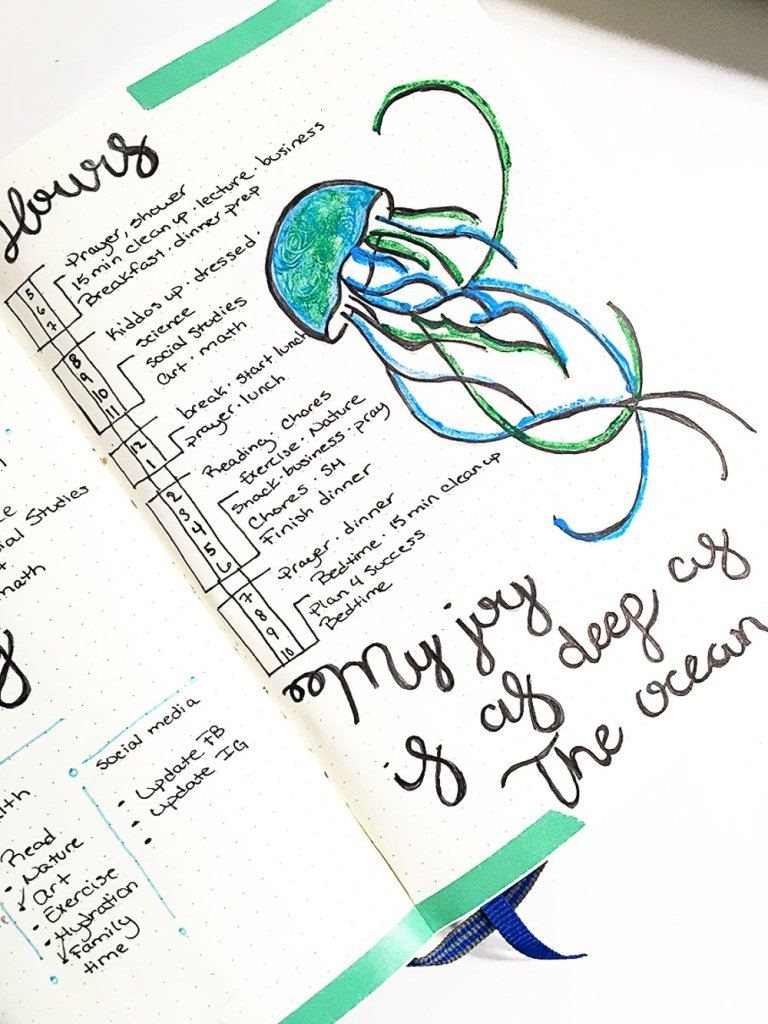 Hours
Prayer, shower
15 min clean up · lecture · business
Breakfast · dinner prep
5
6
7
Kiddos up · dressed ·
Science
Social Studies
art · math
8
9
10
11
break · start lunch
prayer · lunch
12
1
Reading · Chores
Exercise · Nature
Snack · business · pray
Chores · SH
Finish dinner
2
3
4
5
6
Prayer · dinner
Bedtime · 15 min clean up
Plan 4 success
Bedtime
7
8
9
10
My joy
is as deep as
The ocean
ial Studies
math
lth
Read
Nature
art
Exercise
Hydration
Family
time
Social media
Update FB
update IG